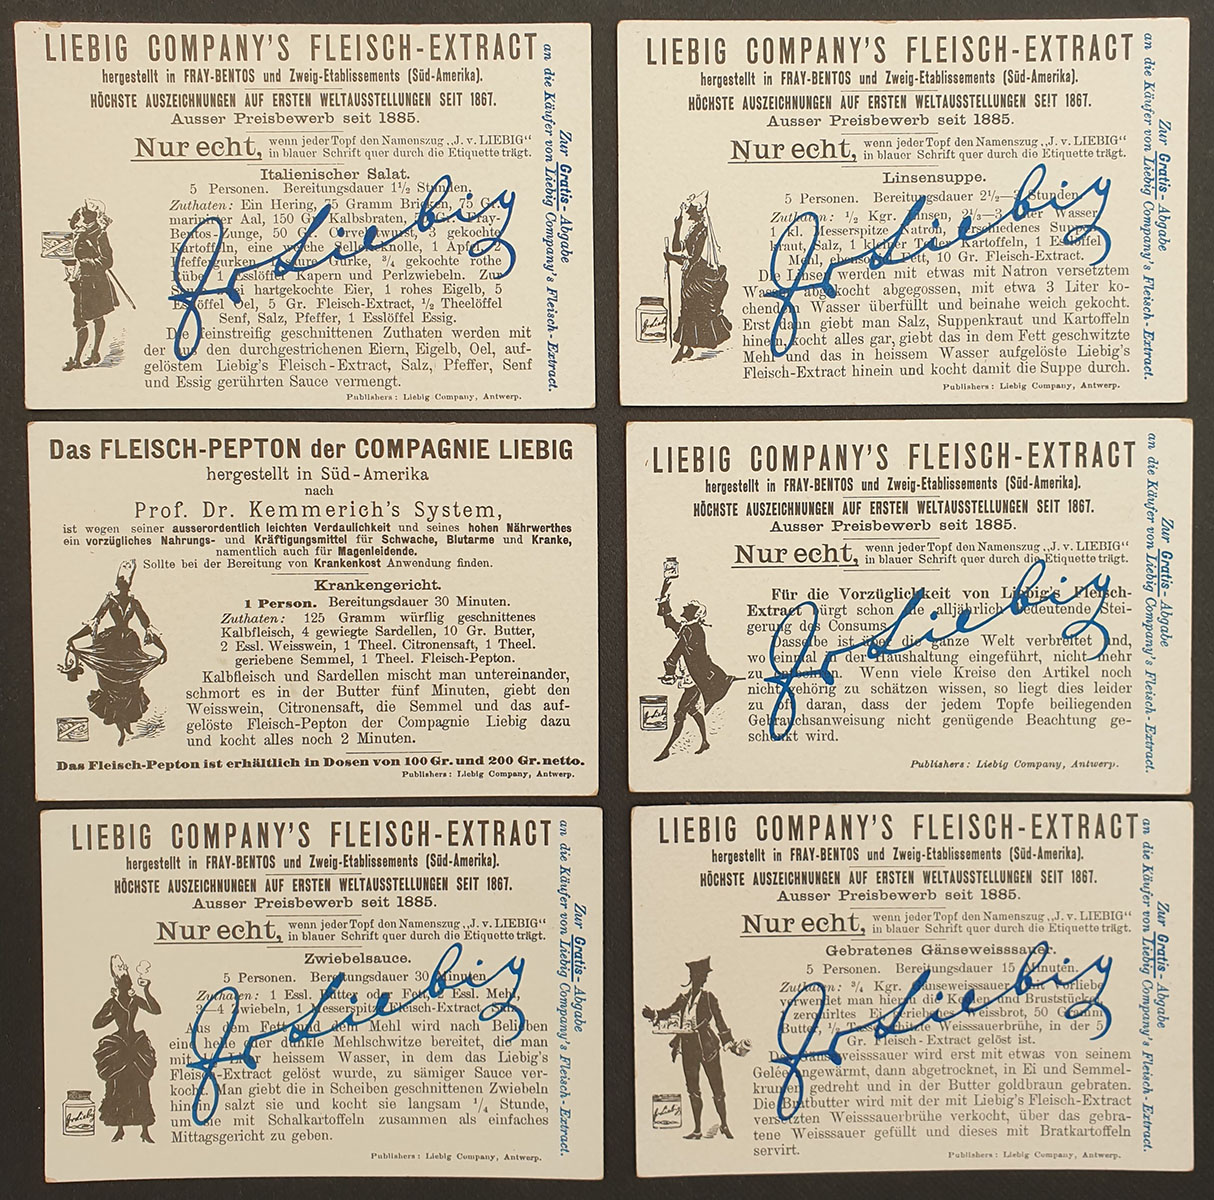 LIEBIG COMPANY'S FLEISCH-EXTRACT
hergestellt in FRAY-BENTOS und Zweig-Etablissements (Süd-Amerika).
HÖCHSTE AUSZEICHNUNGEN AUF ERSTEN WELTAUSSTELLUNGEN SEIT 1867.
Ausser Preisbewerb seit 1885.
Nur echt, wenn jeder Topf den Namenszug „J. v. LIEBIG“
in blauer Schrift quer durch die Etiquette trägt.
Italienischer Salat.
5 Personen. Bereitungsdauer 1½ Stunden.
Zuthaten: Ein Hering, 75 Gramm Bricken, 75 Gr.
marinirter Aal, 150 Gr. Kalbsbraten, Gr. Fray-
Bentos-Zunge, 50 Gr. Cervelatwurst, 3 gekochte
Kartoffeln, eine weiche Sellerieknolle, 1 Apfel, 2
Pfeffergurken, 1 saure Gurke, ¾ gekochte rothe
Rübe, 1 Esslöffel Kapern und Perlzwiebeln. Zur
Sauce: hartgekochte Eier, 1 rohes Eigelb, 5
Esslöffel Oel, 5 Gr. Fleisch-Extract, ½ Theelöffel
Senf, Salz, Pfeffer, 1 Esslöffel Essig.
Die feinstreifig geschnittenen Zuthaten werden mit
der aus den durchgestrichenen Eiern, Eigelb, Oel, auf-
gelöstem Liebig's Fleisch-Extract, Salz, Pfeffer, Senf
und Essig gerührten Sauce vermengt.
Publishers: Liebig Company, Antwerp.
Zur Gratis-Abgabe
an die Käufer von Liebig Company's Fleisch-Extract.
LIEBIG COMPANY'S FLEISCH-EXTRACT
hergestellt in FRAY-BENTOS und Zweig-Etablissements (Süd-Amerika).
HÖCHSTE AUSZEICHNUNGEN AUF ERSTEN WELTAUSSTELLUNGEN SEIT 1867.
Ausser Preisbewerb seit 1885.
Nur echt, wenn jeder Topf den Namenszug „J. v. LIEBIG“
in blauer Schrift quer durch die Etiquette trägt.
Linsensuppe.
5 Personen. Bereitungsdauer 2½—3 Stunden.
Zuthaten: ½ Kgr. Linsen, 2½—3 Liter Wasser,
1 kl. Messerspitze Natron, verschiedenes Suppen-
kraut, Salz, 1 kleiner Teller Kartoffeln, 1 Esslöffel
Mehl, ebensoviel Fett, 10 Gr. Fleisch-Extract.
Die Linsen werden mit etwas mit Natron versetztem
Wasser abgekocht abgegossen, mit etwa 3 Liter ko-
chendem Wasser überfüllt und beinahe weich gekocht.
Erst dann giebt man Salz, Suppenkraut und Kartoffeln
hinein, kocht alles gar, giebt das in dem Fett geschwitzte
Mehl und das in heissem Wasser aufgelöste Liebig's
Fleisch-Extract hinein und kocht damit die Suppe durch.
Publishers: Liebig Company, Antwerp.
Zur Gratis-Abgabe
an die Käufer von Liebig Company's Fleisch-Extract.
Das FLEISCH-PEPTON der COMPAGNIE LIEBIG
hergestellt in Süd-Amerika
nach
Prof. Dr. Kemmerich's System,
ist wegen seiner ausserordentlich leichten Verdaulichkeit und seines hohen Nährwerthes
ein vorzügliches Nahrungs- und Kräftigungsmittel für Schwache, Blutarme und Kranke,
namentlich auch für Magenleidende.
Sollte bei der Bereitung von Krankenkost Anwendung finden.
Krankengericht.
1 Person. Bereitungsdauer 30 Minuten.
Zuthaten: 125 Gramm würflig geschnittenes
Kalbfleisch, 4 gewiegte Sardellen, 10 Gr. Butter,
2 Essl. Weisswein, 1 Theel. Citronensaft, 1 Theel.
geriebene Semmel, 1 Theel. Fleisch-Pepton.
Kalbfleisch und Sardellen mischt man untereinander,
schmort es in der Butter fünf Minuten, giebt den
Weisswein, Citronensaft, die Semmel und das auf-
gelöste Fleisch-Pepton der Compagnie Liebig dazu
und kocht alles noch 2 Minuten.
Das Fleisch-Pepton ist erhältlich in Dosen von 100 Gr. und 200 Gr. netto.
Publishers: Liebig Company, Antwerp.
LIEBIG COMPANY'S FLEISCH-EXTRACT
hergestellt in FRAY-BENTOS und Zweig-Etablissements (Süd-Amerika).
HÖCHSTE AUSZEICHNUNGEN AUF ERSTEN WELTAUSSTELLUNGEN SEIT 1867.
Ausser Preisbewerb seit 1885.
Nur echt, wenn jeder Topf den Namenszug „J. v. LIEBIG“
in blauer Schrift quer durch die Etiquette trägt.
Für die Vorzüglichkeit von Liebig's Fleisch-
Extract bürgt schon die alljährlich bedeutende Stei-
gerung des Consums.
Dasselbe ist über die ganze Welt verbreitet und,
wo einmal in der Haushaltung eingeführt, nicht mehr
zu entbehren. Wenn viele Kreise den Artikel noch
nicht gehörig zu schätzen wissen, so liegt dies leider
zu oft daran, dass der jedem Topfe beiliegenden
Gebrauchsanweisung nicht genügende Beachtung ge-
schenkt wird.
Publishers: Liebig Company, Antwerp.
Zur Gratis-Abgabe
an die Käufer von Liebig Company's Fleisch-Extract.
LIEBIG COMPANY'S FLEISCH-EXTRACT
hergestellt in FRAY-BENTOS und Zweig-Etablissements (Süd-Amerika).
HÖCHSTE AUSZEICHNUNGEN AUF ERSTEN WELTAUSSTELLUNGEN SEIT 1867.
Ausser Preisbewerb seit 1885.
Nur echt, wenn jeder Topf den Namenszug „J. v. LIEBIG“
in blauer Schrift quer durch die Etiquette trägt.
Zwiebelsauce.
5 Personen. Bereitungsdauer 30 Minuten.
Zuthaten: 1 Essl. Butter oder Fett, 2 Essl. Mehl,
3—4 Zwiebeln, 1 Messerspitze Fleisch-Extract, Salz.
Aus dem Fett und dem Mehl wird nach Belieben
eine helle oder dunkle Mehlschwitze bereitet, die man
mit Liter heissem Wasser, in dem das Liebig's
Fleisch-Extract gelöst wurde, zu sämiger Sauce ver-
kocht. Man giebt die in Scheiben geschnittenen Zwiebeln
hinein, salzt sie und kocht sie langsam ¼ Stunde,
um sie mit Schalkartoffeln zusammen als einfaches
Mittagsgericht zu geben.
Publishers: Liebig Company, Antwerp.
Zur Gratis-Abgabe
an die Käufer von Liebig Company's Fleisch-Extract.
LIEBIG COMPANY'S FLEISCH-EXTRACT
hergestellt in FRAY-BENTOS und Zweig-Etablissements (Süd-Amerika).
HÖCHSTE AUSZEICHNUNGEN AUF ERSTEN WELTAUSSTELLUNGEN SEIT 1867.
Ausser Preisbewerb seit 1885.
Nur echt, wenn jeder Topf den Namenszug „J. v. LIEBIG“
in blauer Schrift quer durch die Etiquette trägt.
Gebratenes Gänseweisssauer.
5 Personen. Bereitungsdauer 15 Minuten.
Zuthaten: ¾ Kgr. Gänseweissauer (mit Vorliebe
verwendet man hierzu die Keulen und Bruststücke),
zerquirltes Ei, geriebenes Weissbrot, 50 Gramm
Butter, ½ Tasse Weisssauerbrühe, in der 5
Gr. Fleisch-Extract gelöst ist.
Das Gänseweisssauer wird erst mit etwas von seinem
Gelée angewärmt, dann abgetrocknet, in Ei und Semmel-
krumen gedreht und in der Butter goldbraun gebraten.
Die Bratbutter wird mit der mit Liebig's Fleisch-Extract
versetzten Weisssauerbrühe verkocht, über das gebra-
tene Weisssauer gefüllt und dieses mit Bratkartoffeln
servirt.
Publishers: Liebig Company, Antwerp.
Zur Gratis-Abgabe
an die Käufer von Liebig Company's Fleisch-Extract.